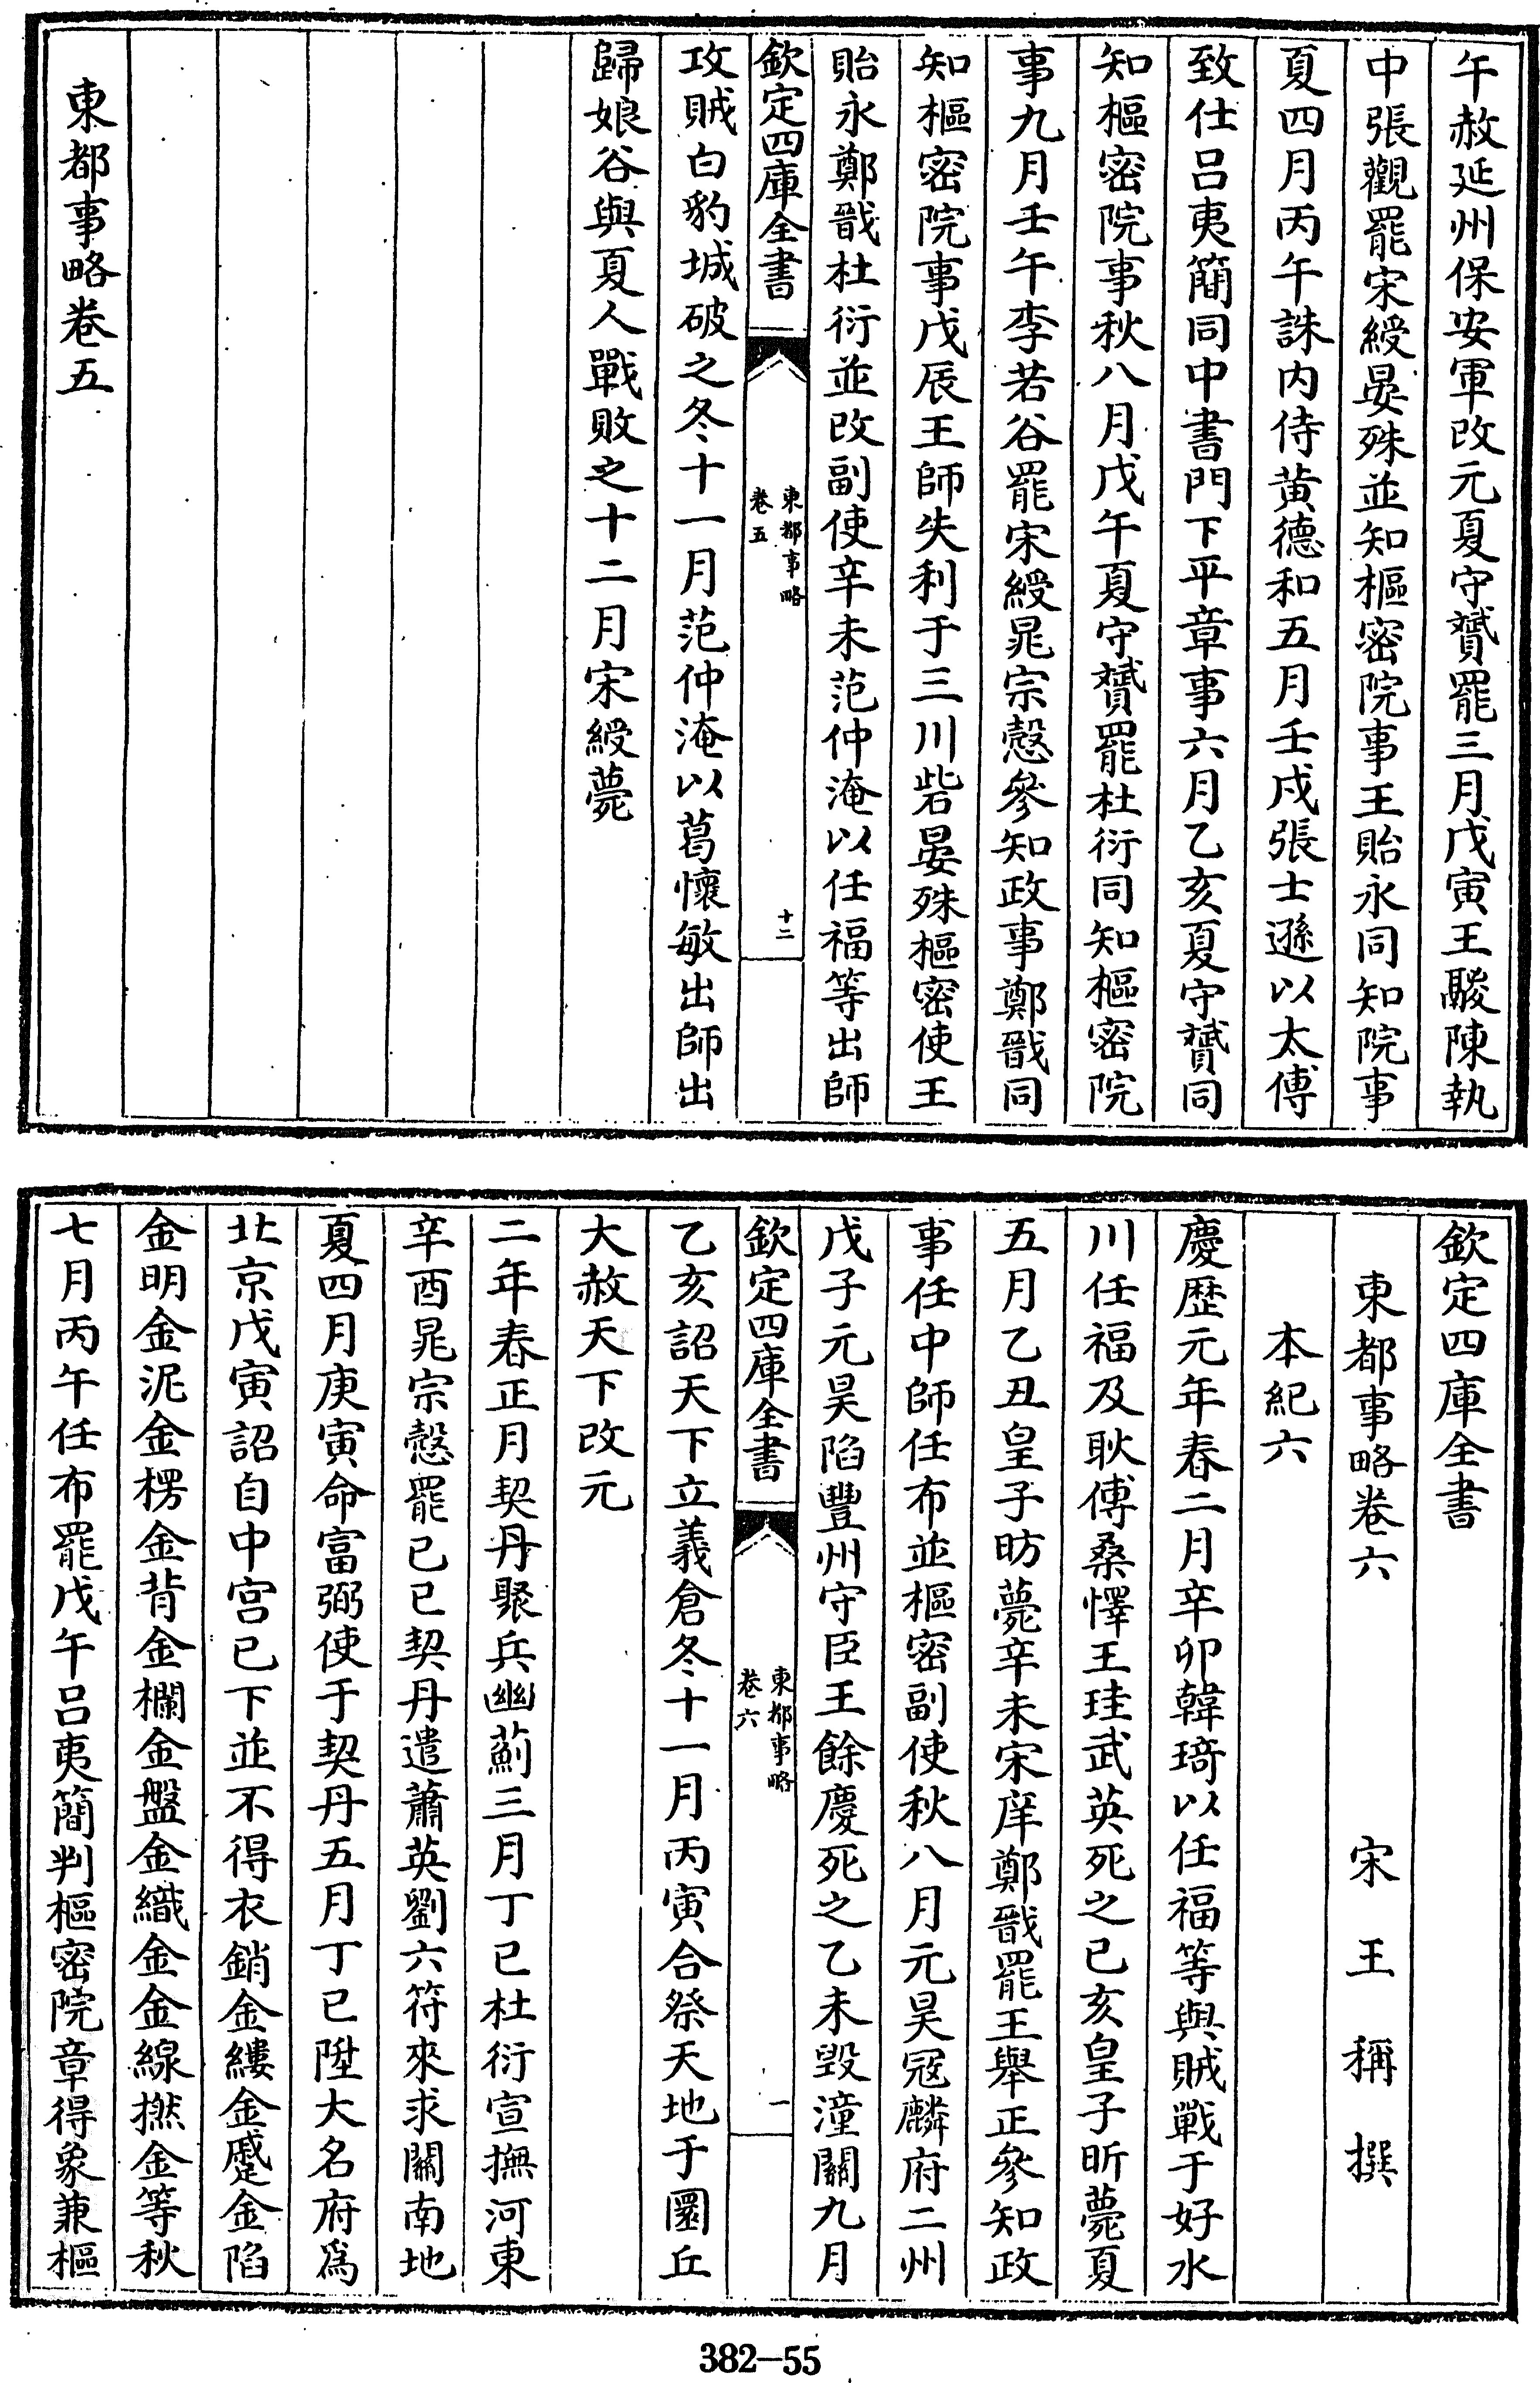 午赦延州保安軍改元夏守贇罷三月戊寅王鬷陳執
中張觀罷宋綬晏殊並知樞密院事王貽永同知院事
夏四月丙午誅内侍黄德和五月壬戌張士遜以太傅
致仕吕夷簡同中書門下平章事六月乙亥夏守贇同
知樞密院事秋八月戊午夏守贇罷杜衍同知樞密院
事九月壬午李若谷罷宋綬晁宗慤參知政事鄭戩同
知樞密院事戊辰王師失利于三川砦晏殊樞密使王
貽永鄭戩杜衍並改副使辛未范仲淹以任福等出師
欽定四庫全書
東都事略
卷五
十二
攻賊白豹城破之冬十一月范仲淹以葛懷敏出師出
歸娘谷與夏人戰敗之十二月宋綬薨
東都事略卷五
欽定四庫全書
東都事略卷六
宋王稱撰
本紀六
慶歴元年春二月辛卯韓琦以任福等與賊戰于好水
川任福及耿傅桑懌王珪武英死之已亥皇子昕薨夏
五月乙丑皇子昉薨辛未宋庠鄭戩罷王舉正參知政
事任中師任布並樞密副使秋八月元昊冦麟府二州
戊子元昊陷豐州守臣王餘慶死之乙未毀潼關九月
欽定四庫全書
東都事略
卷六
一
乙亥詔天下立義倉冬十一月丙寅合祭天地于圜丘
大赦天下改元
二年春正月契丹聚兵幽薊三月丁已杜衍宣撫河東
辛酉晁宗慤罷已已契丹遣蕭英劉六符來求關南地
夏四月庚寅命富弼使于契丹五月丁已陞大名府爲
北京戊寅詔自中宫已下並不得衣銷金縷金蹙金陷
金明金泥金楞金背金欄金盤金織金金線撚金等秋
七月丙午任布罷戊午吕夷簡判樞密院章得象兼樞
382—55